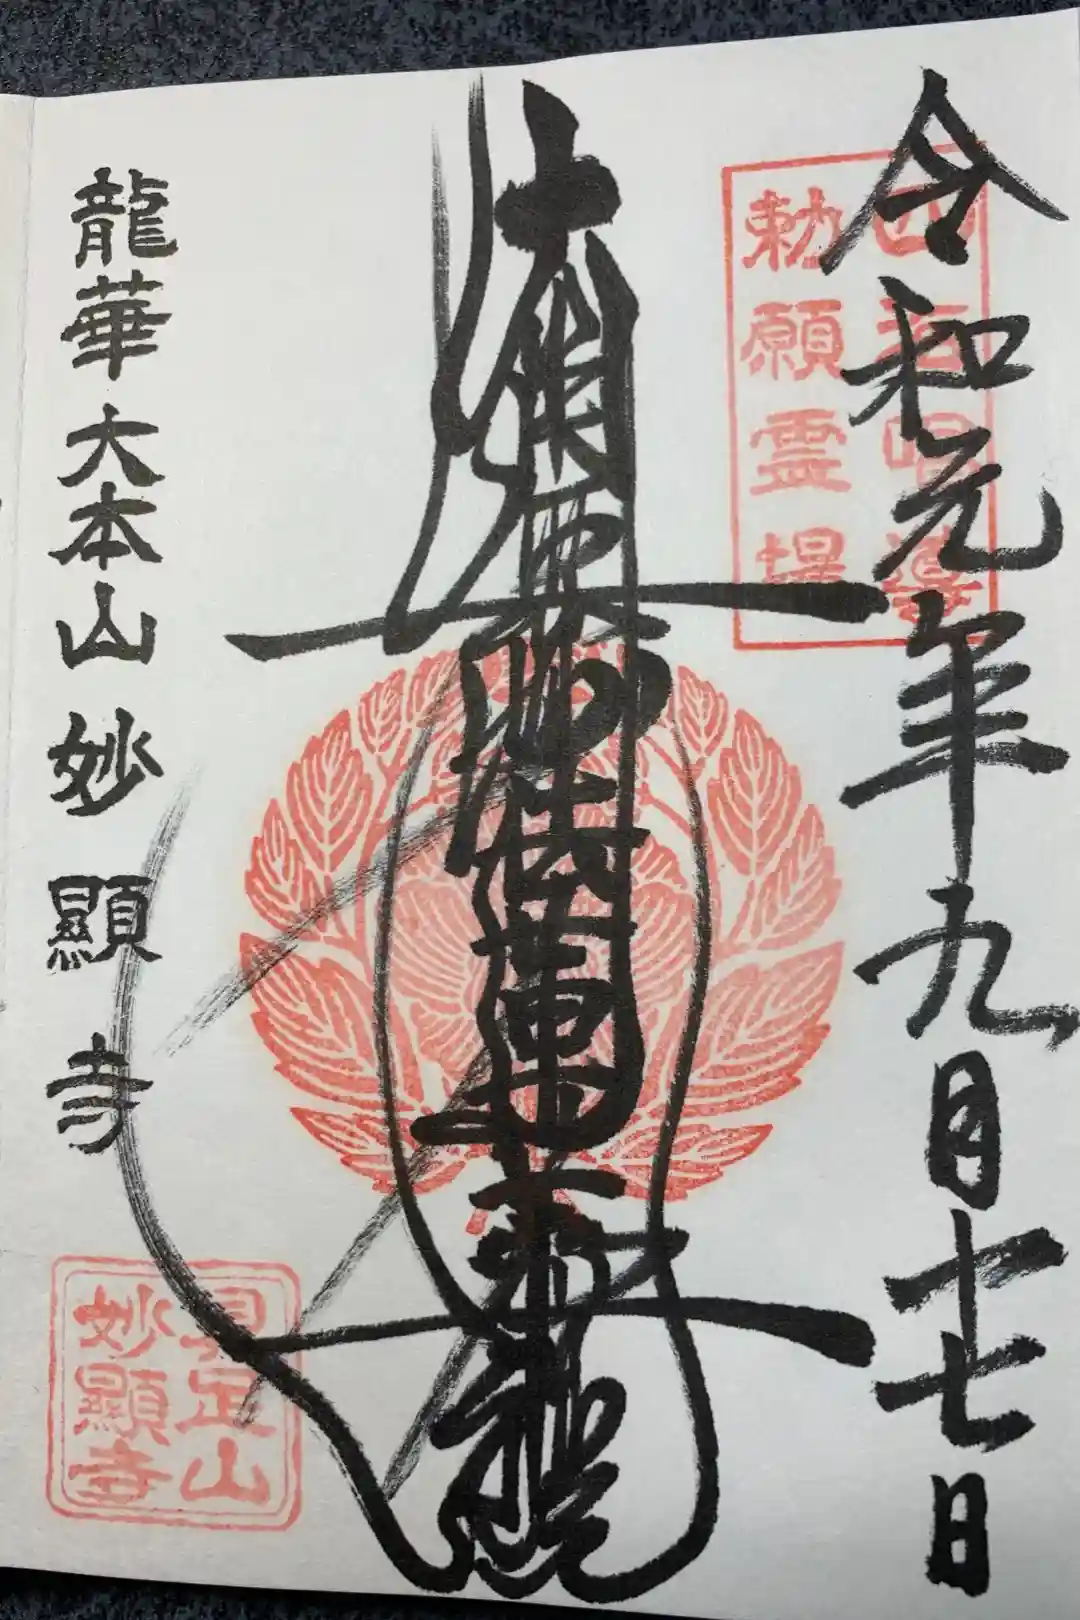 令和元年九月十七日
四海唱導
勅願霊場
南無妙法蓮華経
龍華 大本山 妙顯寺
具足山
妙顯寺